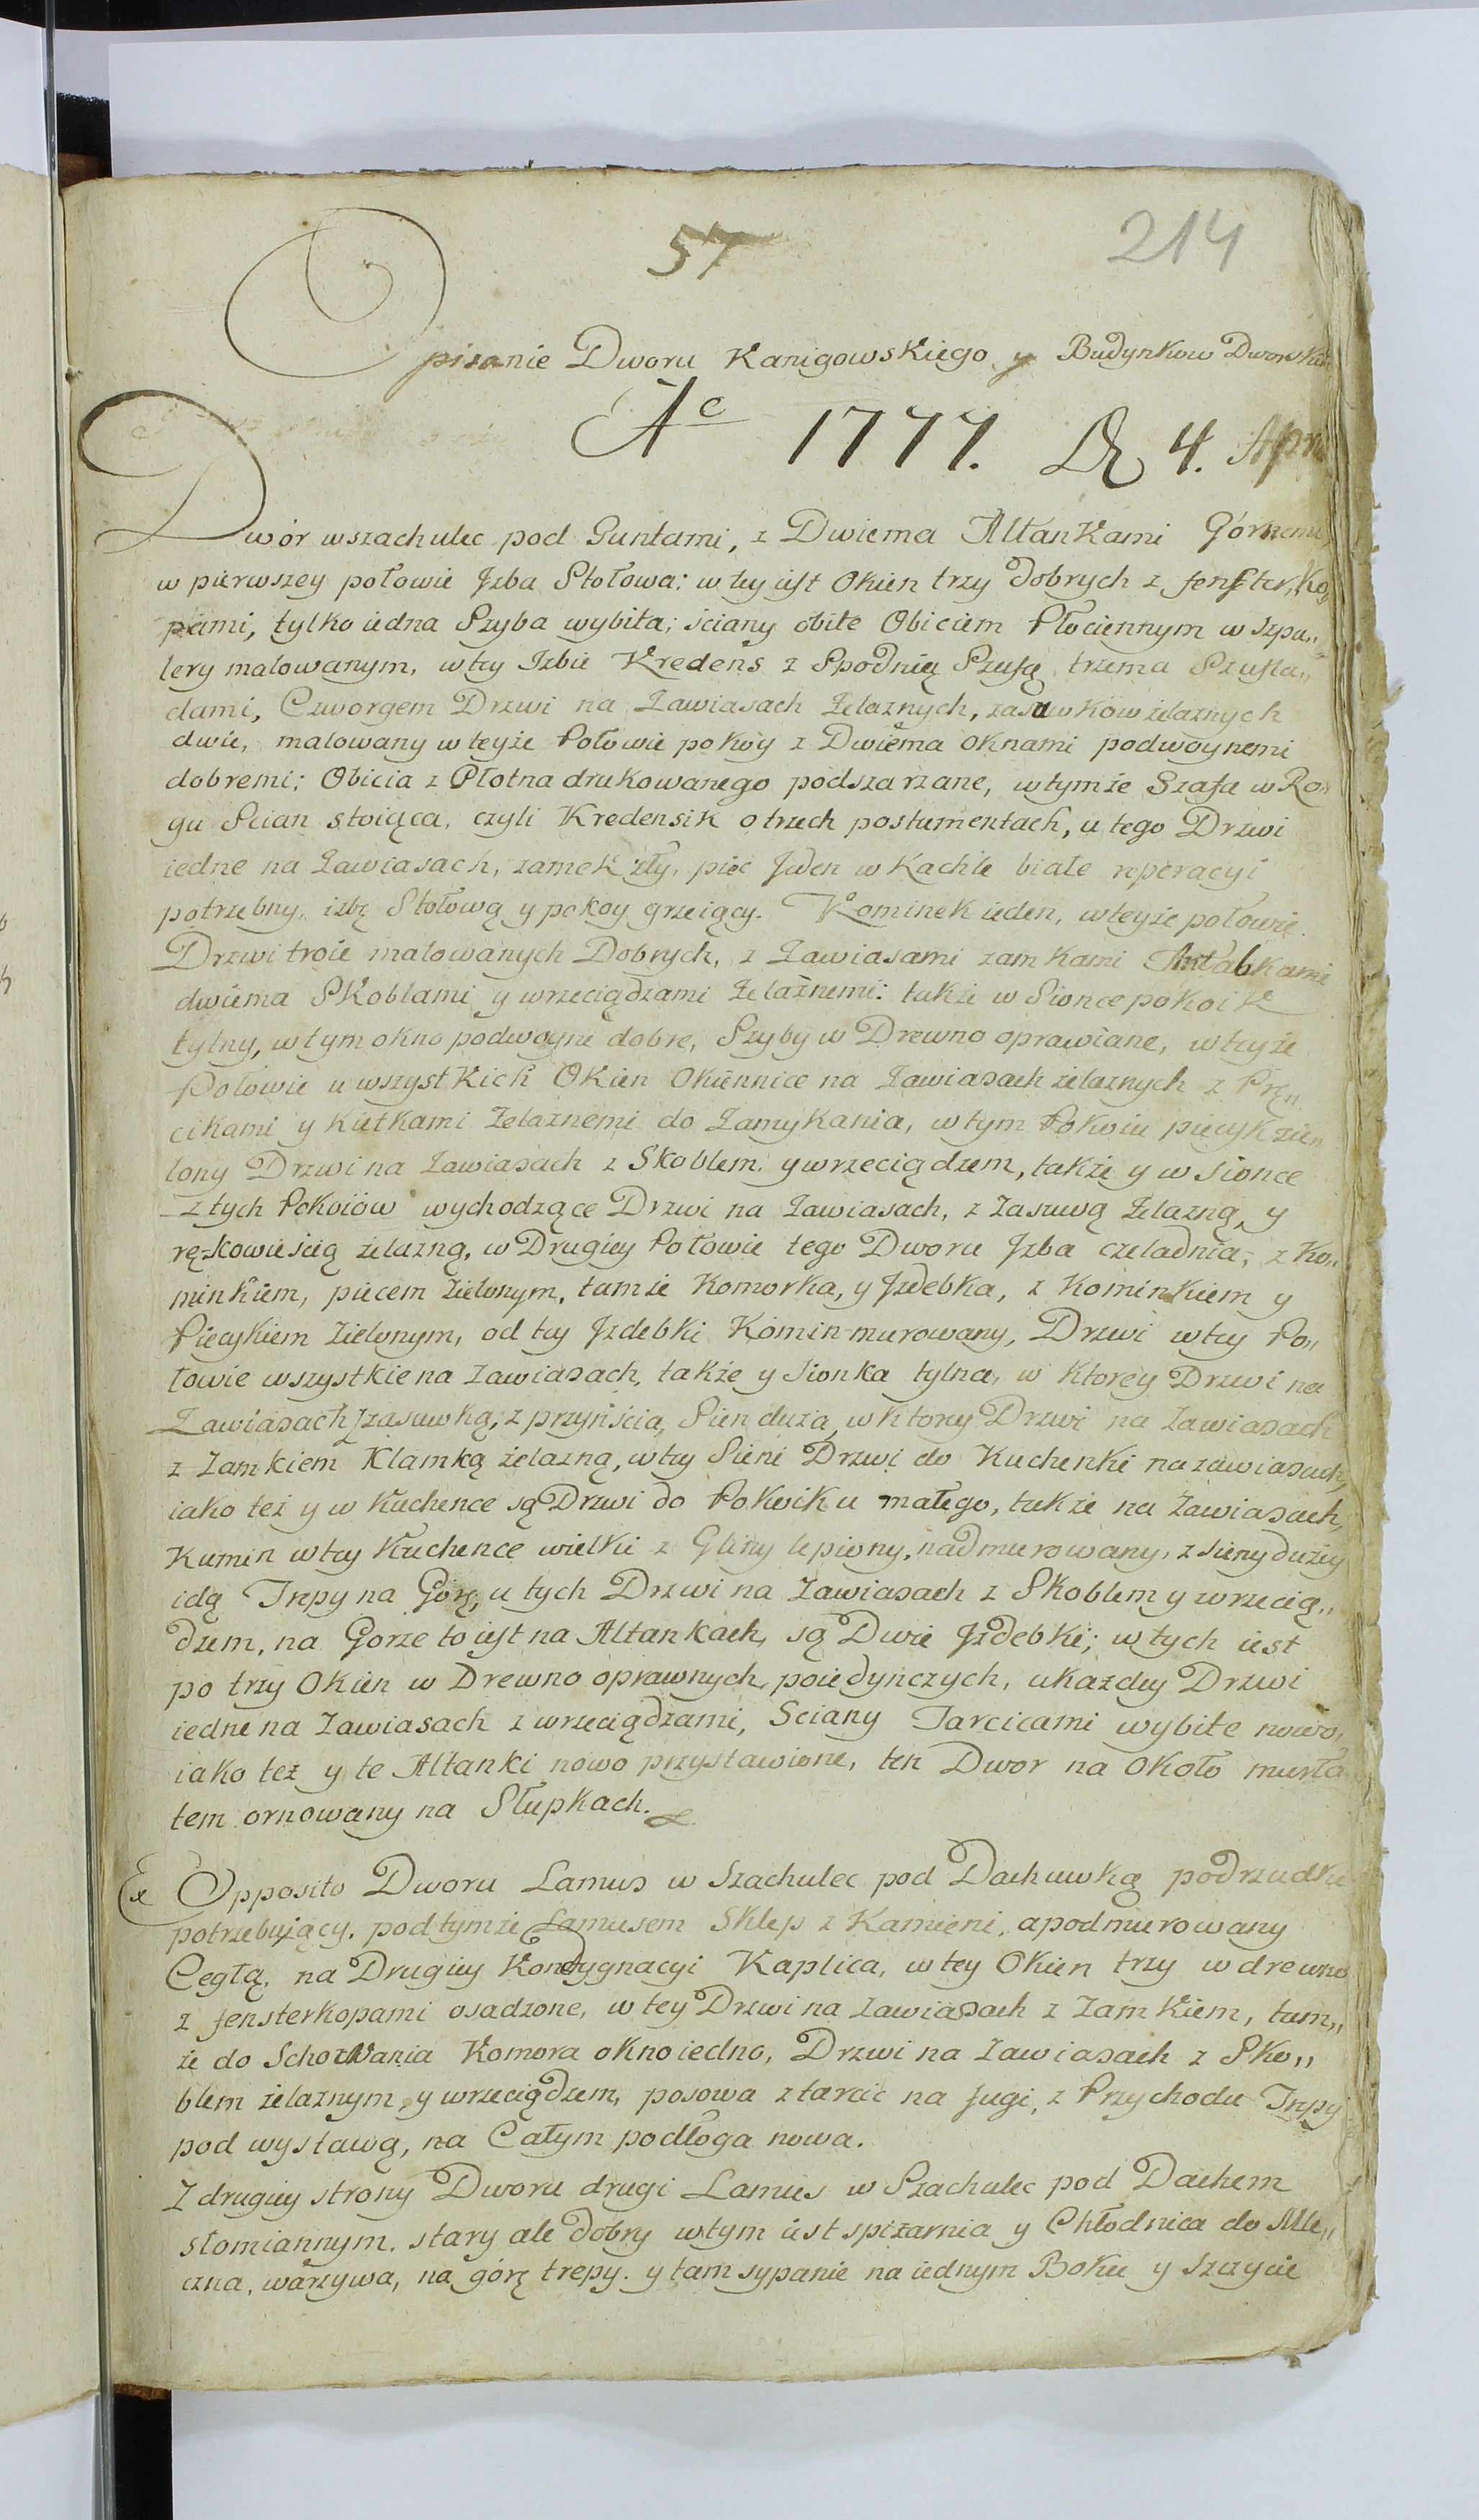 57
214
Opisanie Dworu Kanigowskiego y Budynkow Dworskich
Ao 1777. D 4. Apri
Dwór w szachulec pod Guntami, z Dwiema Altankami Górnemi,
w pierwszey połowie Jzba Stołowa: w tey iest Okien trzy dobrych z fenster,, ko,,
pami, tylko iedna Szyba wybita; ściany obite Obiciem Płociennym w Szpa,,
lery malowanym, w tey Izbie Kredens z Spodnią Szafą, trzema Szufla,,
dami, Czworgem Drzwi na Zawiasach Żelaznych, zasuwkow żelaznych
dwie, malowany w teyże Połowie pokoy z Dwiema oknami podwoynemi
dobremi; Obicia z Płotna drukowanego podszarzane, w tymże Szafa w Ro,,
gu Scian stoiąca, czyli Kredensik o trzech postumentach, u tego Drzwi
iedne na Zawiasach, zamek zły, piec Jeden w Kachle białe reperacyi
potrzebny, izbę Stołową y pokoy grzeiący. Kominek ieden, w teyże połowie
Drzwi troie malowanych Dobrych, z Zawiasami zamkami Antabkami
dwiema Skoblami y wrzeciądzami Żelaznemi: także w Sionce pokoik
tylny, w tym okno podwoyne dobre, Szyby w Drewno oprawiane, w teyże
Połowie u wszystkich Okien Okiennice na Zawiasach żelaznych z Prę,,
cikami y Kietkami Żelaznemi do Zamykania, w tym Pokoiu piecyk zie,,
lony Drzwi na Zawiasach z Skoblem, y wrzeciądzem, także y w Sionce
z tych Pokoiów wychodzące Drzwi na Zawiasach, z Zasuwą Żelazną, y
rękowieścią żelazną, w Drugiey Połowie tego Dworu Jzba czeladnia, z Ko,,
minkiem, piecem Zielonym, tamże Komorka, y Jzdebka, z Kominkiem y
Piecykiem Zielonym, od tey Jzdebki Komin murowany, Drzwi w tey Po,,
łowie wszystkie na Zawiasach, także y Sionka tylna, w Ktorey Drzwi na
Zawiasach z zasuwką, z przyńścia, Sien duża, w ktorey Drzwi na Zawiasach
z Zamkiem Klamką żelazną, w tey Sieni Drzwi do Kuchenki na zawiasach,
iako też y w Kuchence są Drzwi do Pokoiku małego, także na Zawiasach,
Kumin w tey Kuchence wielki z Gliny lepiony, nadmurowany, z sieny dużey
idą Trepy na Górę, u tych Drzwi na Zawiasach z Skoblem y wrzecią,,
dzem, na Gorze to iest na Altankach, są Dwie Jzdebki; w tych iest
po trzy Okien w Drewno oprawnych, poiedyńczych, u każdey Drzwi
iedne na Zawiasach z wrzeciądzami, Sciany Tarcicami wybite nowo,
iako też y te Altanki nowo przystawione, ten Dwor na około murła,,
tem ornowany na Słupkach.
Ex Opposito Dworu Lamus w Szachulec pod Dachuwką podrzudku
potrzebuiący, pod tymże Lamusem Sklep z Kamieni, a podmurowany
Cegłą, na Drugiey Kondygnacyi Kaplica, w tey Okien trzy w drewno
z fensterkopami osadzone, w tey Drzwi na Zawiasach z Zamkiem, tam,,
że do Schowania Komora okno iedno, Drzwi na Zawiasach z Sko,,
blem żelaznym, y wrzeciądzem, posowa z tarcic na fugi, z Przychodu Trepy
pod wystawą, na Całym podłoga nowa.
Z drugiey strony Dworu drugi Lamus w Szachulec pod Dachem
słomiannym, stary ale dobry w tym iest spiżarnia y Chłodnica do Mle,,
czna, warzywa, na górę trepy, y tam sypanie na iednym Boku y Szczycie